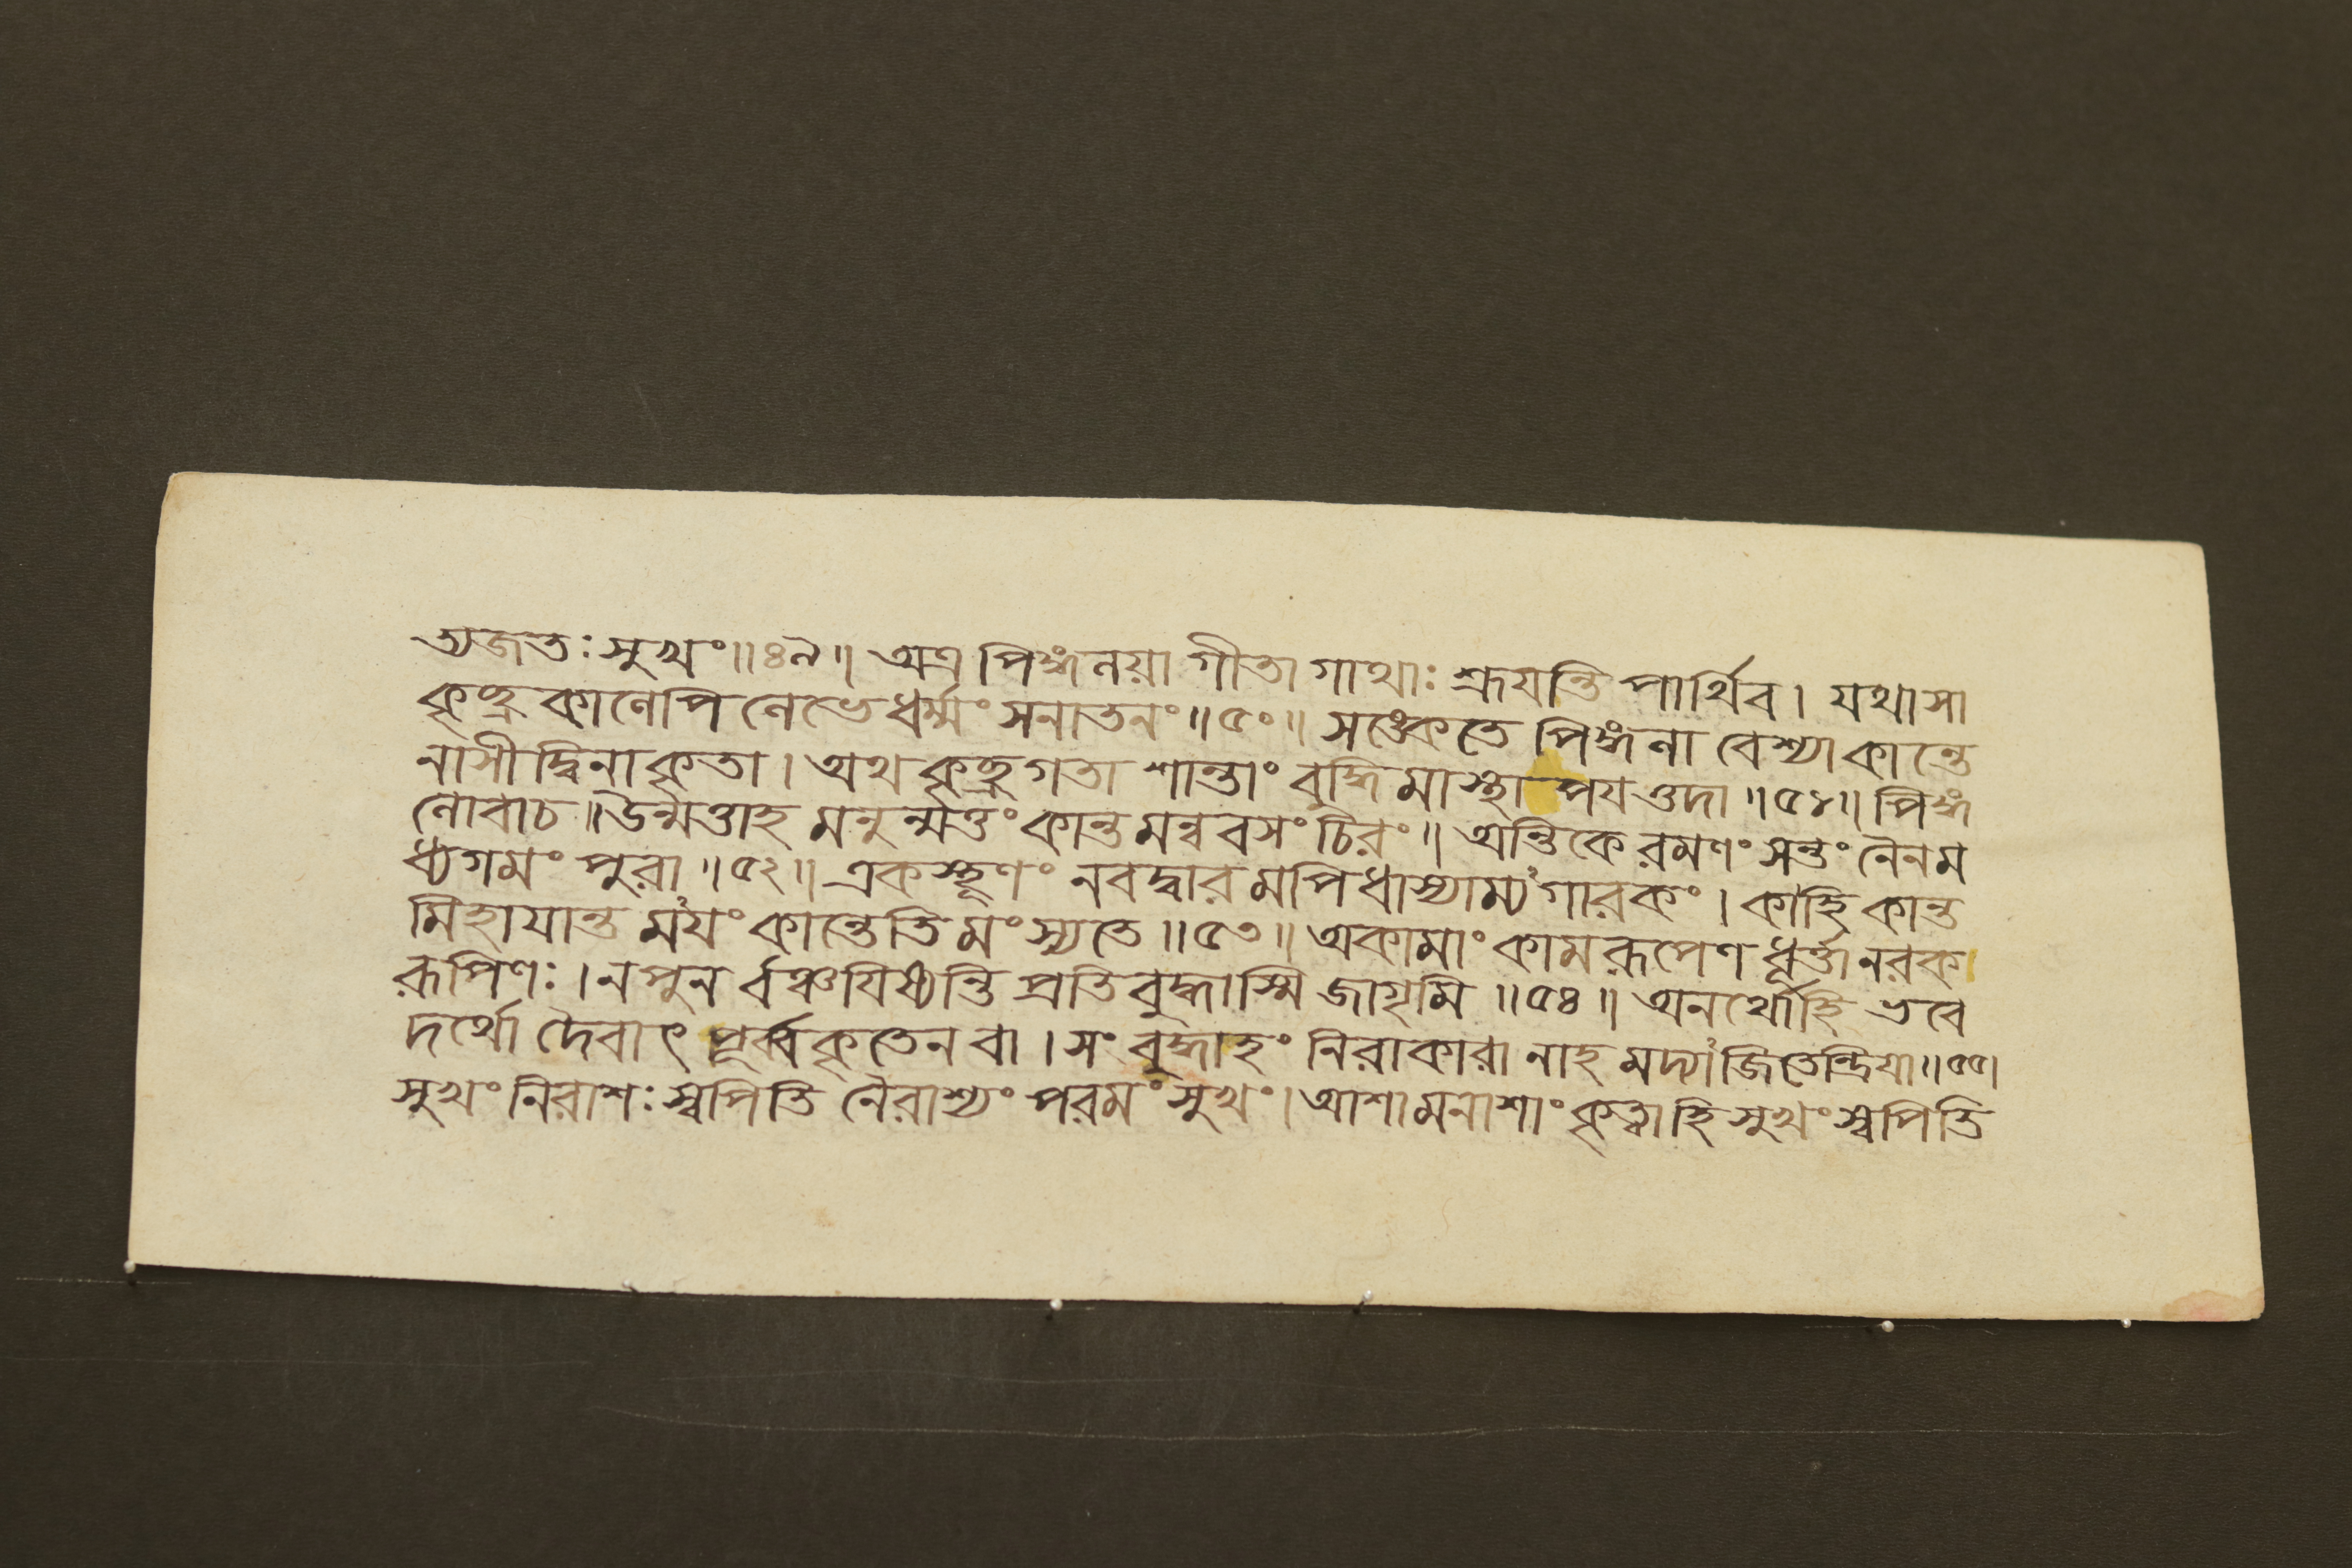 ত্যজত: সুখং॥৪৯॥ অত্র পিঙ্গলয়া গীতা গাথা: শ্রূযন্তি পার্থিব। যথাসা
কৃচ্ছ্রকালেপি লেভে ধর্ম্মং সনাতনং॥৫০॥ সঙ্কেতে পিঙ্গলা বেশ্যা কান্তে
নাসীদ্বিনাকৃতা। অথ কৃচ্ছ্রগতা শান্তাং বুদ্ধিমাস্থাপযত্তদা॥৫১॥ পিঙ্গ
লোবাচ॥উন্মত্তাহমনুন্মত্তং কান্তমন্ববসং চিরং॥ অন্তিকে রমণং সন্তং নৈনম
ধ্যগমং পুরা॥৫২॥ একস্থূণং নবদ্বারমপিধাস্যাম্যগারকং। কাহি কান্ত
মিহাযান্তময়ং কান্তেতি মংস্যতে॥৫৩॥ অকামাং কামরূপেণ ধূর্ত্তা নরক
রূপিণ:। ন পুনর্ব্বঞ্চযিষ্যন্তি প্রতিবুদ্ধাস্মি জাগৃমি॥৫৪॥ অনর্থোহি ভবে
দর্থো দৈবাৎ পূর্ব্বকৃতেন বা। সংবুদ্ধাহং নিরাকারা নাহমদ্যাজিতেন্দ্রিযা॥৫৫।
সুখং নিরাশ: স্বপিতি নৈরাশ্যং পরমং সুখং। আশামনাশাং কৃত্বাহি সুখং স্বপিতি